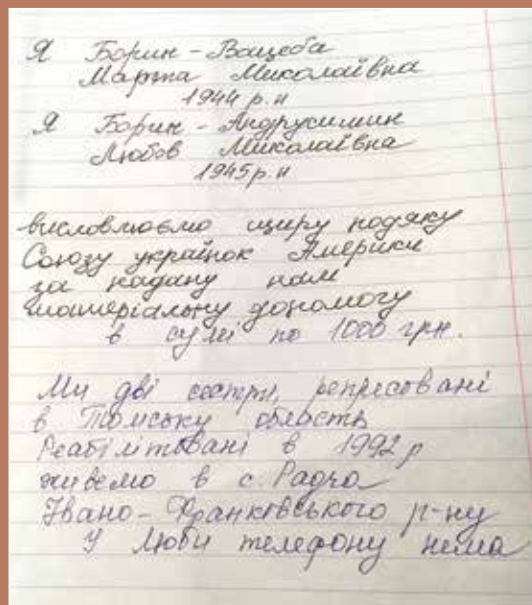 Я Борин - Вацеба
Марта Миколаївна
1944 р.н
Я Борин - Андрусишин
Любов Миколаївна
1945р.н
висловлюємо щиру подяку
Союзу українок Америки
за надану нам
матеріальну допомогу
в сумі по 1000 грн.
Ми дві сестри, репресовані
в Томську область
Реабілітовані в 1992 р
живемо в с. Радча
Івано - Франківського р-ну
У Люби телефону нема